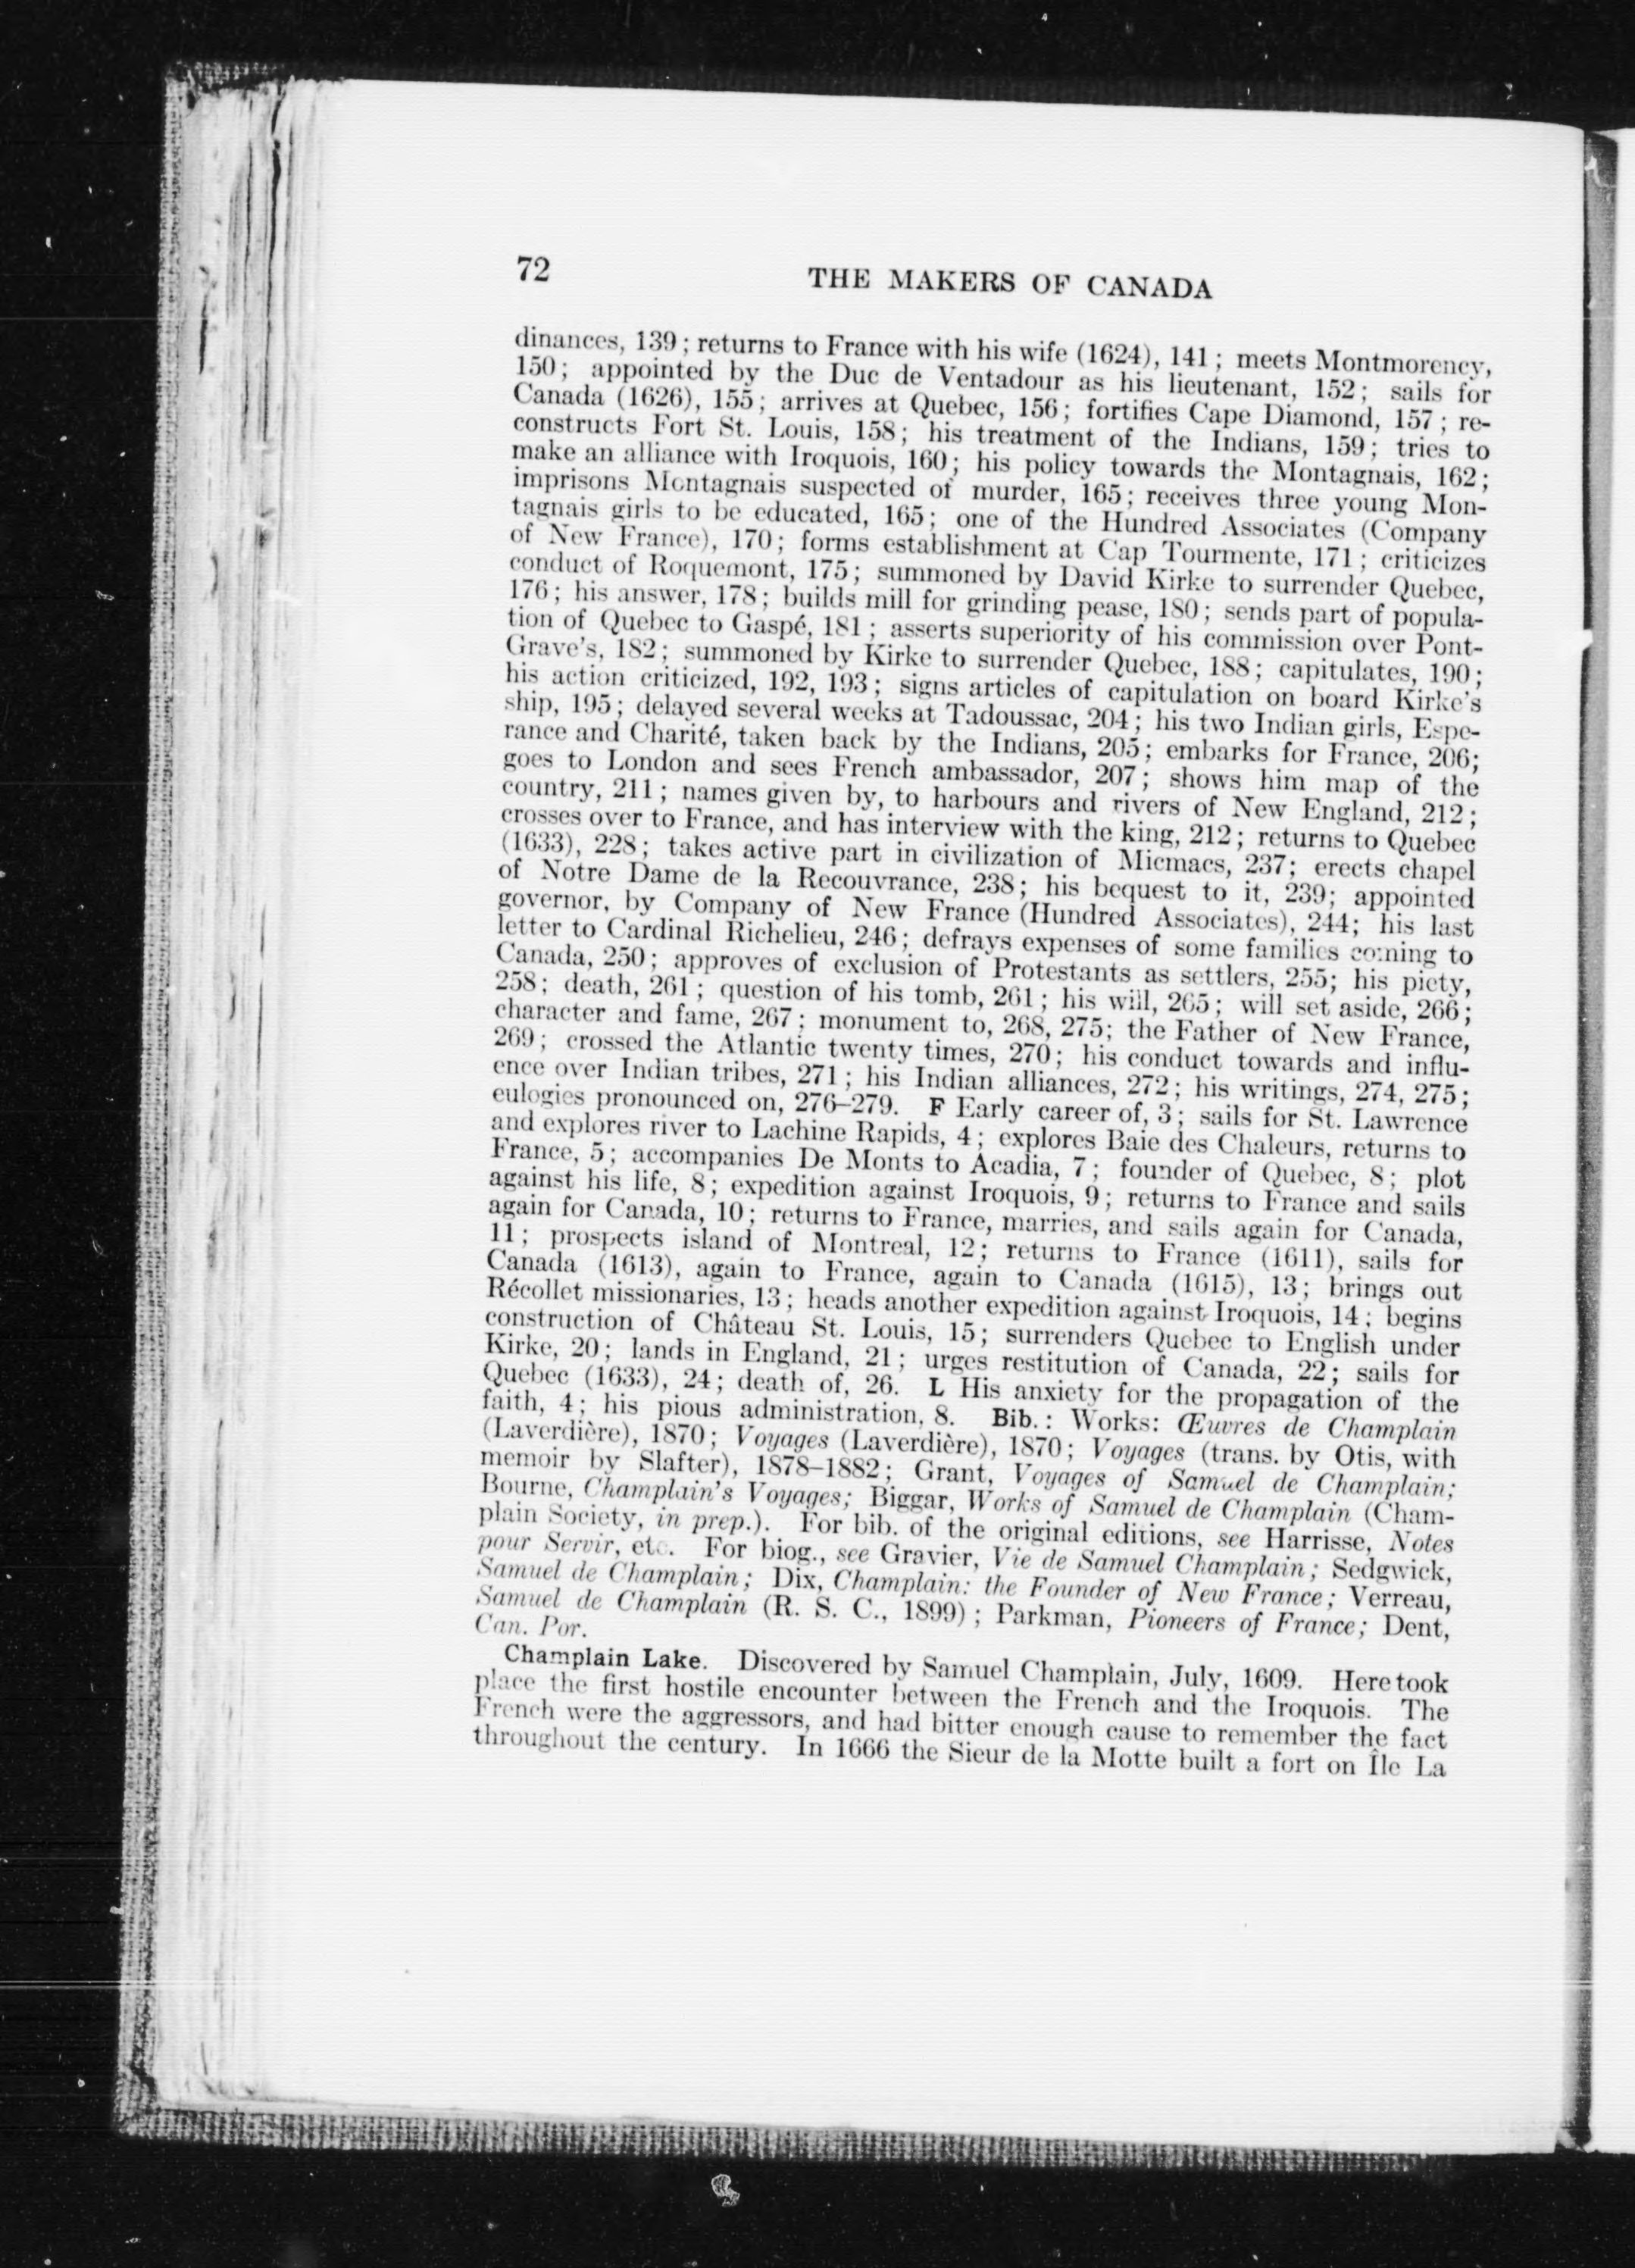 72
THE MAKERS OF CANADA
dinances, 139; returns to France with his wife (1624), 141; meets Montmorency,
150; appointed by the Duc de Ventadour as his lieutenant, 152; sails for
Canada (1626), 155; arrives at Quebec, 156; fortifies Cape Diamond, 157; re-
constructs Fort St. Louis, 158; his treatment of the Indians, 159; tries to
make an alliance with Iroquois, 160; his policy towards the Montagnais, 162;
imprisons Montagnais suspected of murder, 165; receives three young Mon-
tagnais girls to be educated, 165; one of the Hundred Associates (Company
of New France), 170; forms establishment at Cap Tourmente, 171; criticizes
conduct of Roquemont, 175; summoned by David Kirke to surrender Quebec,
176; his answer, 178; builds mill for grinding pease, 180; sends part of popula-
tion of Quebec to Gaspé, 181; asserts superiority of his commission over Pont-
Grave's, 182; summoned by Kirke to surrender Quebec, 188; capitulates, 190;
his action criticized, 192, 193; signs articles of capitulation on board Kirke's
ship, 195; delayed several weeks at Tadoussac, 204; his two Indian girls, Espe-
rance and Charité, taken back by the Indians, 205; embarks for France, 206;
goes to London and sees French ambassador, 207; shows him map of the
country, 211; names given by, to harbours and rivers of New England, 212;
crosses over to France, and has interview with the king, 212; returns to Quebec
(1633), 228; takes active part in civilization of Micmacs, 237; erects chapel
of Notre Dame de la Recouvrance, 238; his bequest to it, 239; appointed
governor, by Company of New France (Hundred Associates), 244; his last
letter to Cardinal Richelieu, 246; defrays expenses of some families coming to
Canada, 250; approves of exclusion of Protestants as settlers, 255; his piety,
258; death, 261; question of his tomb, 261; his will, 265; will set aside, 266;
character and fame, 267; monument to, 268, 275; the Father of New France,
269; crossed the Atlantic twenty times, 270; his conduct towards and influ-
ence over Indian tribes, 271; his Indian alliances, 272; his writings, 274, 275;
eulogies pronounced on, 276–279. F Early career of, 3; sails for St. Lawrence
and explores river to Lachine Rapids, 4; explores Baie des Chaleurs, returns to
France, 5; accompanies De Monts to Acadia, 7; founder of Quebec, 8; plot
against his life, 8; expedition against Iroquois, 9; returns to France and sails
again for Canada, 10; returns to France, marries, and sails again for Canada,
11; prospects island of Montreal, 12; returns to France (1611), sails for
Canada (1613), again to France, again to Canada (1615), 13; brings out
Récollet missionaries, 13; heads another expedition against Iroquois, 14; begins
construction of Château St. Louis, 15; surrenders Quebec to English under
Kirke, 20; lands in England, 21; urges restitution of Canada, 22; sails for
Quebec (1633), 24; death of, 26. L His anxiety for the propagation of the
faith, 4; his pious administration, 8. Bib.: Works: Œuvres de Champlain
(Laverdière), 1870; Voyages (Laverdière), 1870; Voyages (trans. by Otis, with
memoir by Slafter), 1878–1882; Grant, Voyages of Samuel de Champlain;
Bourne, Champlain's Voyages; Biggar, Works of Samuel de Champlain (Cham-
plain Society, in prep.). For bib. of the original editions, see Harrisse, Notes
pour Servir, etc. For biog., see Gravier, Vie de Samuel Champlain; Sedgwick,
Samuel de Champlain; Dix, Champlain: the Founder of New France; Verreau,
Samuel de Champlain (R. S. C., 1899); Parkman, Pioneers of France; Dent,
Can. Por.
Champlain Lake. Discovered by Samuel Champlain, July, 1609. Here took
place the first hostile encounter between the French and the Iroquois. The
French were the aggressors, and had bitter enough cause to remember the fact
throughout the century. In 1666 the Sieur de la Motte built a fort on Île La